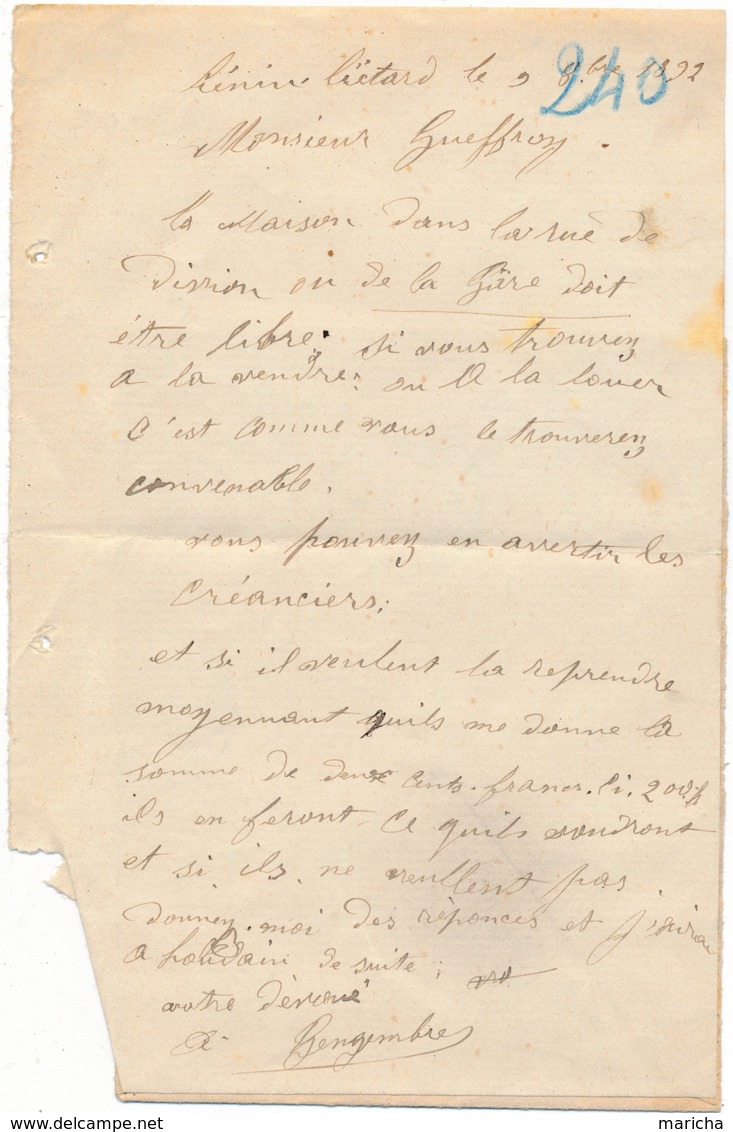 hénin liétard le 9 8.bre 1892
240
Monsieur Gueffroy.
la Maison dans la rue de
Division ou de la Gare doit
être libre; si vous trouvez
a la vendre; ou a la louer
c'est comme vous le trouverez
convenable.
vous pouvez en avertir les
créanciers;
et si il veulent la reprendre
moyennant quils me donne la
somme de deux cents francs. li. 200f
ils en feront ce quils voudront
et si ils ne veullent pas
donnez moi des réponces et j'airai
a houdain de suite;
votre dévoué
Gengembre
www.delcampe.net
maricha